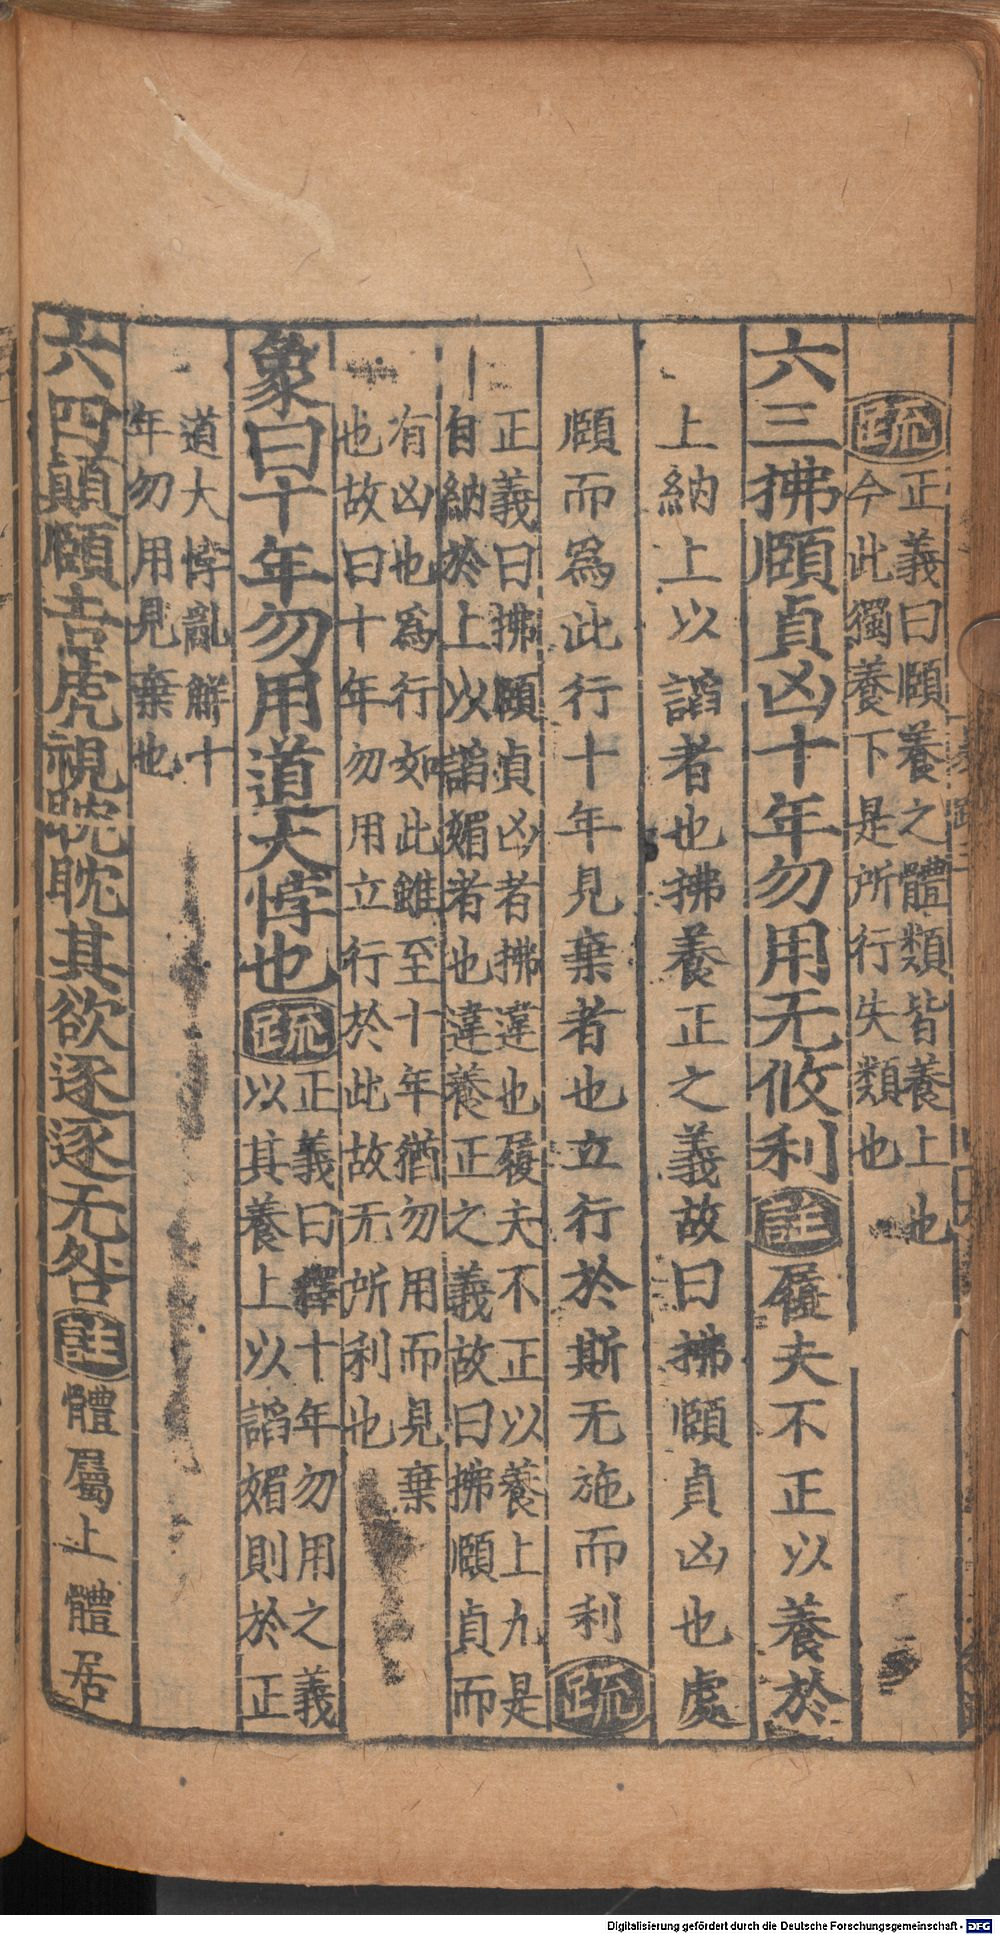 疏 正義曰頤養之體類皆養上也
今此獨養下是所行失類也
六三拂頤貞凶十年勿用无攸利 註 履夫不正以養於
上納上以謟者也拂養正之義故曰拂頤貞凶也處
頤而爲此行十年見棄者也立行於斯无施而利 疏
正義曰拂頤貞凶者拂違也履夫不正以養上九是
自納於上以謟媚者也違養正之義故曰拂頤貞而
有凶也爲行如此雖至十年猶勿用而見棄
也故曰十年勿用立行於此故无所利也
象曰十年勿用道大悖也 疏 正義曰釋十年勿用之義
以其養上以謟媚則於正
道大悖亂解十
年勿用見棄也
六四顛頤吉虎視眈眈其欲逐逐无咎 註 體屬上體居
Digitalisierung gefördert durch die Deutsche Forschungsgemeinschaft - DFG